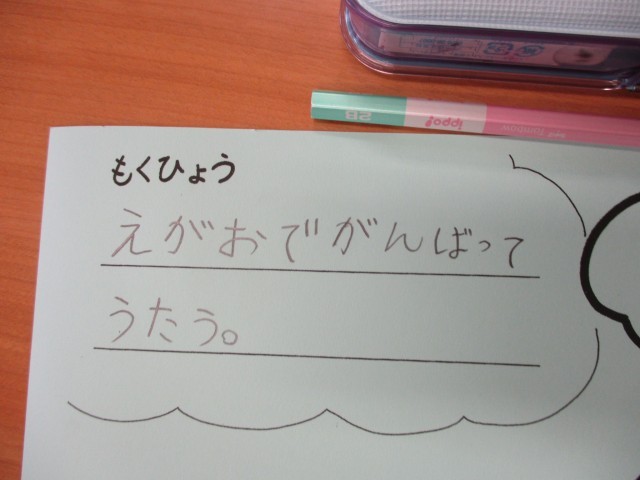 2B ippo!
もくひょう
えがおでがんばって
うたう。